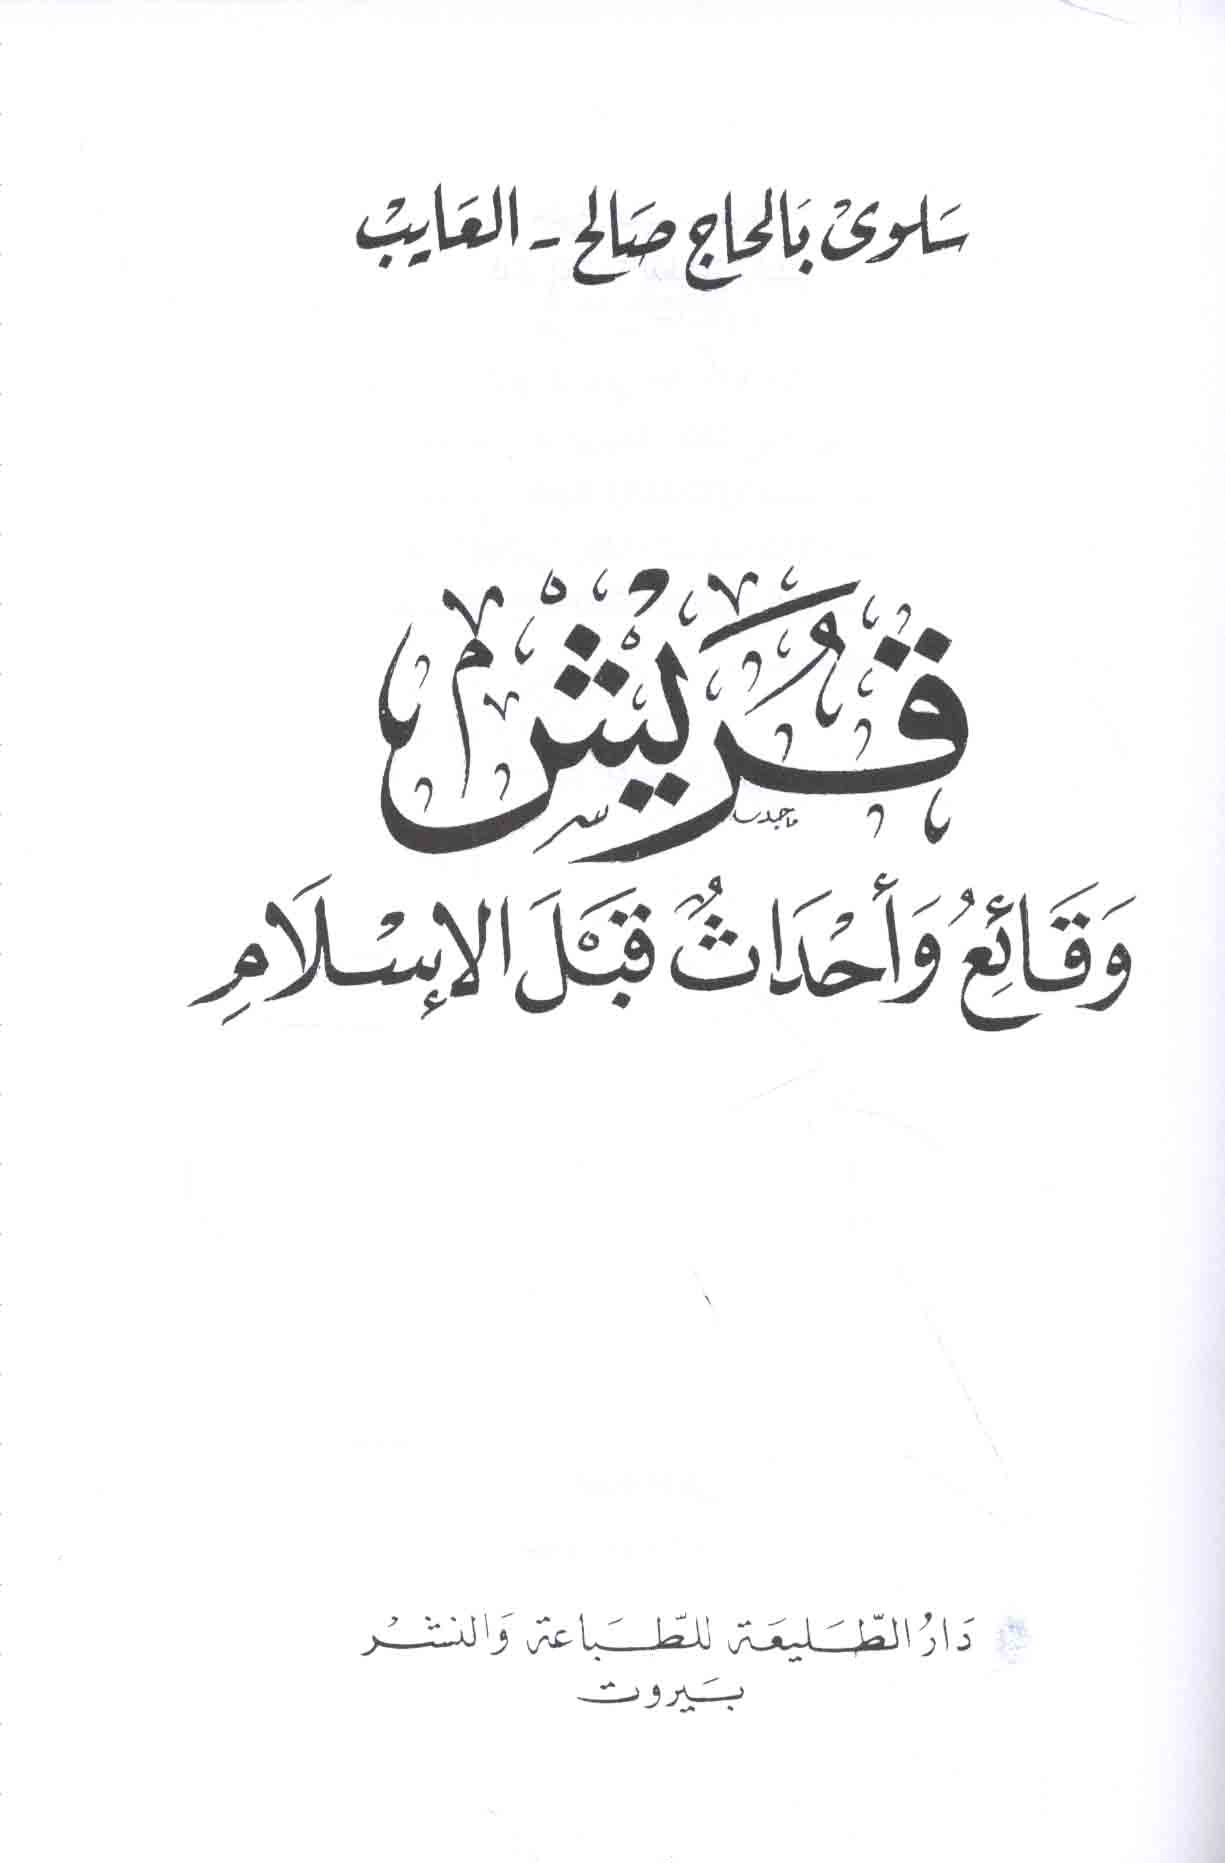 سَلوىْ بَالحاج صَالح - العَايبْ
قُرَيْشٌ
ماجد
وَقَائِعُ وَأَحْدَاثٌ قَبْلَ الإسْلَامِ
دَارُ الطَّليعَة للطّبَاعَة وَالنشْر
بَيروت